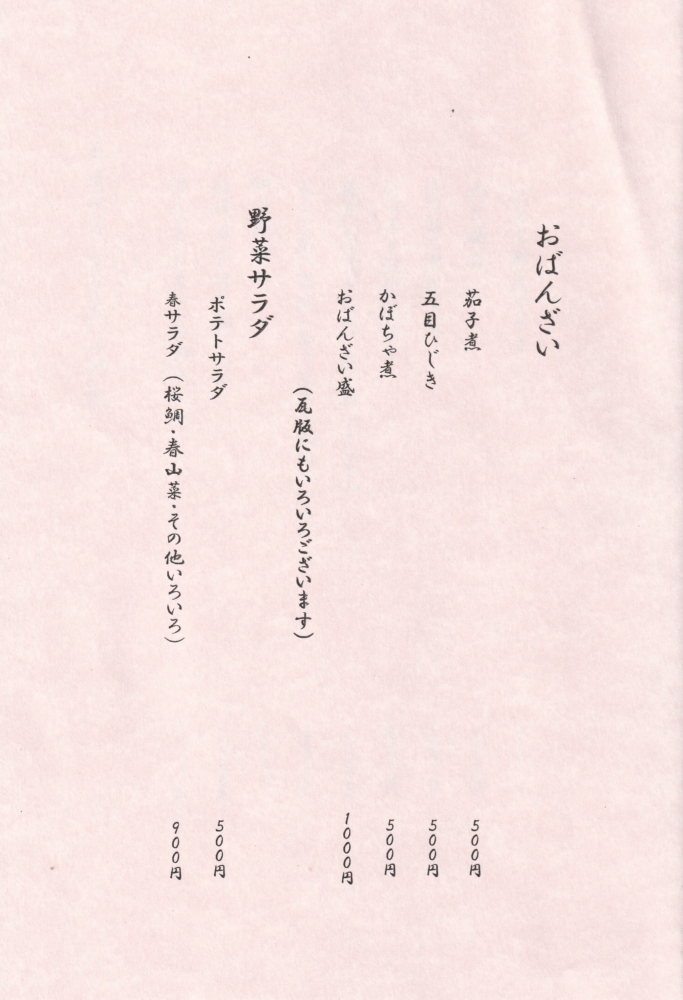 おばんざい
茄子煮 500円
五目ひじき 500円
かぼちゃ煮 500円
おばんざい盛 1000円
(瓦版にもいろいろございます)
野菜サラダ
ポテトサラダ 500円
春サラダ (桜鯛・春山菜・その他いろいろ) 900円